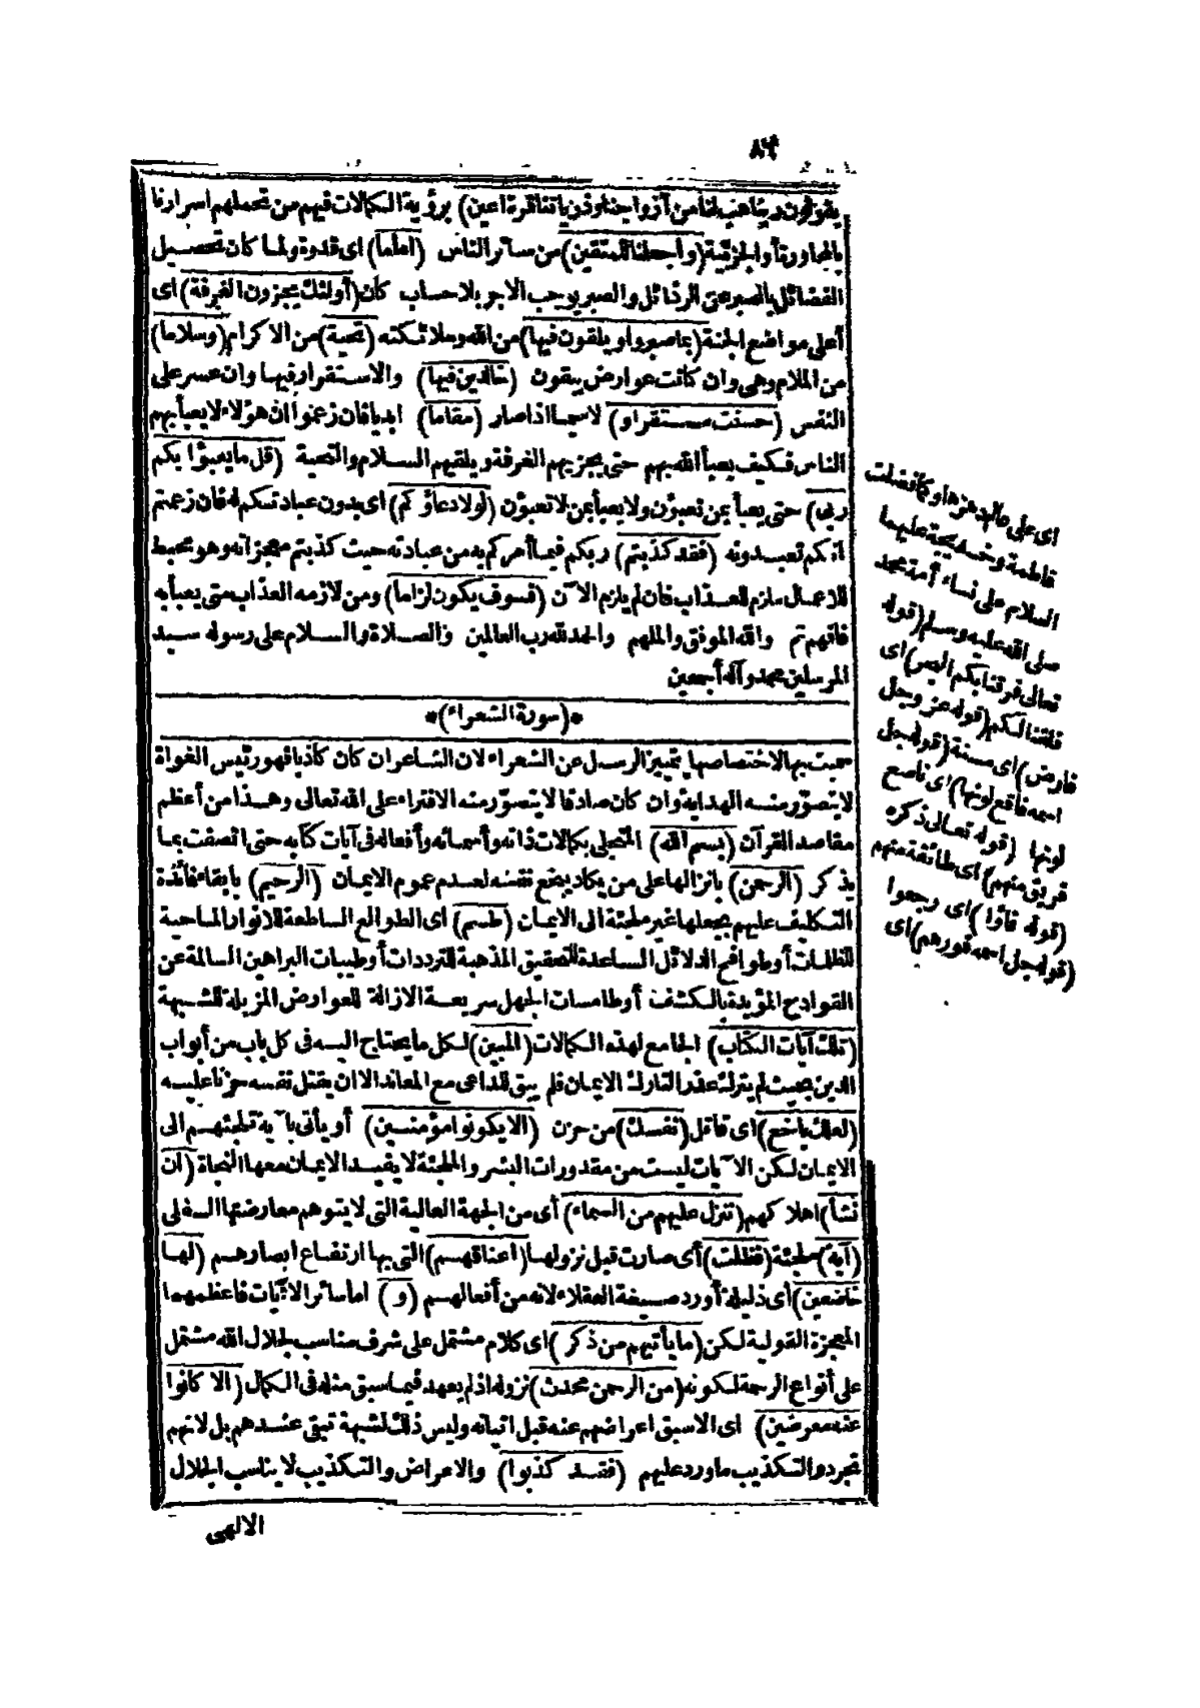 ٨٣
يقولون ربنا هب لنا من أزواجنا وذرياتنا قرة أعين) برؤية الكمالات فيهم من تحملهم اسرارنا
بالمجاورة أو الجزئية (واجعلنا للمتقين) من سائر الناس (اماما) اى قدوة ولما كان تحصيل
الفضائل بالصبر عن الرذائل والصبر يوجب الاجر بلا حساب كان (أولئك يجزون الغرفة) اى
أعلى مواضع الجنة (بما صبروا ويلقون فيها) من الله وملائكته (تحية) من الاكرام (وسلاما)
من الملام وهى وان كانت عوارض يبقون (خالدين فيها) والاستقرار فيها وان عسر على
النفس (حسنت مستقرا و) لا سيما اذا صار (مقاما) ابديا فان زعموا أن هؤلاء لا يعبأ بهم
الناس فكيف يعبأ الله بهم حتى يجزيهم الغرفة ويلقيهم السلام والتحية (قل ما يعبؤا بكم
ربى) حتى يعبأ بمن تعبؤن ولا يعبأ بمن لا تعبؤن (لولا دعاؤكم) اى بدون عبادتكم له فان زعمتم
انكم تعبدونه (فقد كذبتم) ربكم فيما أمركم به من عبادته حيث كذبتم معجزاته وهو محبط
للاعمال ملزم للعذاب فان لم يلزم الآن (فسوف يكون لزاما) ومن لازمه العذاب متى يعبأ به
فافهم تم والله الموفق والملهم والحمد لله رب العالمين والصلاة والسلام على رسوله سيد
المرسلين محمد وآله أجمعين
*(سورة الشعراء)*
سميت بها لاختصاصها بتمييز الرسل عن الشعراء لان الشاعر ان كان كاذبا فهو رئيس الغواة
لا يتصور منه الهداية وان كان صادقا لا يتصور منه الافتراء على الله تعالى وهذا من أعظم
مقاصد القرآن (بسم الله) المتجلى بكمالات ذاته وأسمائه وأفعاله فى آيات كتابه حتى اتصفت بما
يذكر (الرحمن) بانزالها على من يكاد يبخع نفسه لعدم عموم الايمان (الرحيم) بابقاء فائدة
التكليف عليهم بجعلها غير ملجئة الى الايمان (طسم) اى الطوالع الساطعة للانوار الماحية
للظلمات أو طوافح الدلائل المساعدة للتحقيق المذهبة للترددات أو طيبات البراهين السالمة عن
القوادح المؤيدة بالكشف أو طامسات الجهل سريعة الازالة للعوارض المزيلة للشبهة
(تلك آيات الكتاب) الجامع لهذه الكمالات (المبين) لكل ما يحتاج اليه فى كل باب من أبواب
الدين بحيث لم يترك عذر التارك الايمان فلم يبق للداعى مع المعاند الا ان يقتل نفسه حزنا عليه
(لعلك باخع) اى قاتل (نفسك) من حزن (الا يكونوا مؤمنين) أو يأتى بآية تلجئهم الى
الايمان لكن الآيات ليست من مقدورات البشر والملجئة لا يفيد الايمان معها النجاة (ان
نشأ) اهلاكهم (ننزل عليهم من السماء) أى من الجهة العالية التى لا يتوهم معارضتها السفلى
(آية) ملجئة (فظلت) أى صارت قبل نزولها (اعناقهم) التى بها ارتفاع ابصارهم (لها
خاضعين) أى ذليلة أورد صيغة العقلاء لانه من أفعالهم (و) اما سائر الآيات فاعظمها
المعجزة القولية لكن (ما يأتيهم من ذكر) اى كلام مشتمل على شرف مناسب لجلال الله مشتمل
على أنواع الرحمة لكونه (من الرحمن محدث) نزوله اذ لم يعهد فيما سبق مثله فى الكمال (الا كانوا
عنه معرضين) اى الا سبق اعراضهم عنه قبل اتيانه وليس ذلك لشبهة تبقى عندهم بل لانهم
تجردوا لتكذيب ما ورد عليهم (فقد كذبوا) والاعراض والتكذيب لا يناسب الجلال
الالهى
اى على عالمى دهرها وكما فضلت
فاطمة وخديجة عليهما
السلام على نساء أمة محمد
صلى الله عليه وسلم (قوله
تعالى فرقنا بكم البحر) اى
فلقنا لكم (قوله عز وجل
فارض) اى مسنة (قوله جل
اسمه فاقع لونها) اى ناصع
لونها (قوله تعالى ذكره
فريق منهم) اى طائفة منهم
(قوله فاؤا) اى رجعوا
(قوله جل اسمه فورهم) اى